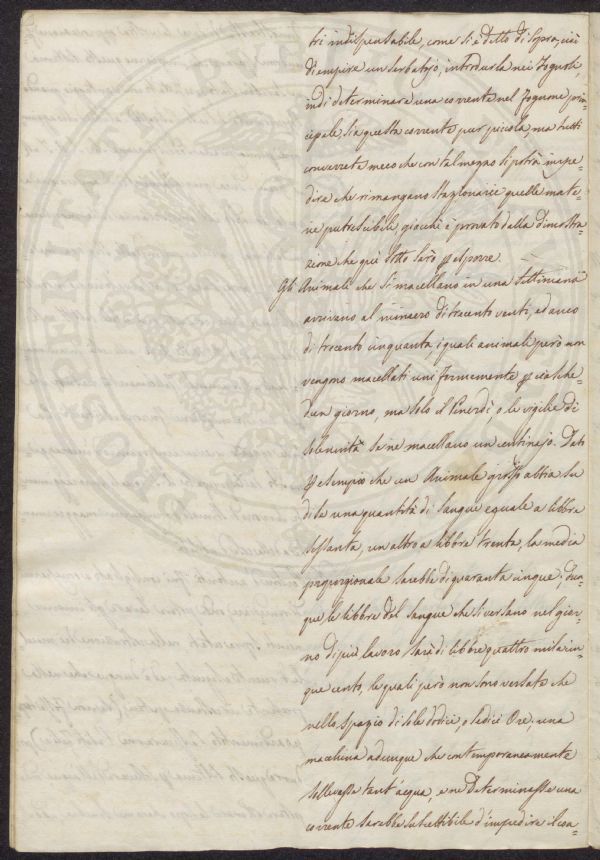 tri indispensabile, come si è detto di sopra, cioè
di empire un serbatojo, introdurla nei Fognoli,
indi determinare una corrente nel Fognone prin=
cipale, sia questa corrente pur piccola, ma tutti
converrete meco che con tal mezzo si potrà impe=
dire che rimangano stazionarie quelle mate=
rie putrescibili, giacchè è provato dalla dimostra=
zione che quì sotto sarò per esporre.
Gli Animali che si macellano in una Settimana
arrivano al numero di trecento venti, ed anco
di trecento cinquanta, i quali animali però non
vengono macellati uniformemente per ciasche=
dun giorno, ma solo il Venerdì, o le vigilie di
solennità se ne macellano un centinajo. Dato
per esempio che un Animale grosso abbia in
di se una quantità di sangue eguale a libbre
sessanta, un altro a libbre trenta, la media
proporzionale sarebbe di quaranta cinque; dun=
que le libbre del sangue che si versano nel gior=
no di più lavoro sarà di libbre quattro mila cin=
que cento, le quali però non sono versate che
nello spazio di sole dodici, o sedici Ore; una
macchina adunque che contemporaneamente
sollevasse tant'acqua, e ne determinasse una
corrente sarebbe suscettibile d'impedire il con=